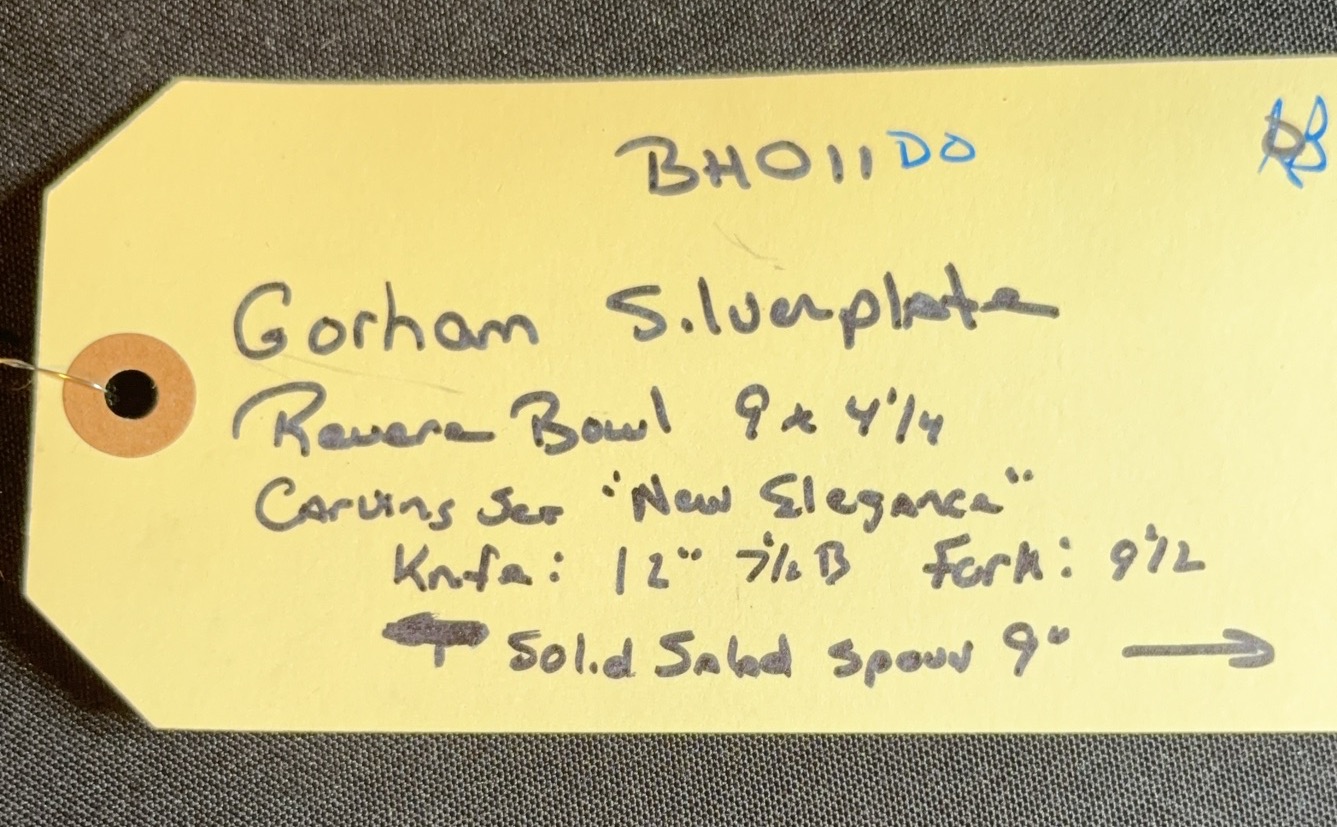 BH011 DO
Gorham Silverplate
Revere Bowl 9 x 4 1/4
Carving Set "New Elegance"
Knife: 12" 7 1/2 B Fork: 9 1/2
Solid Salad Spoon 9" →